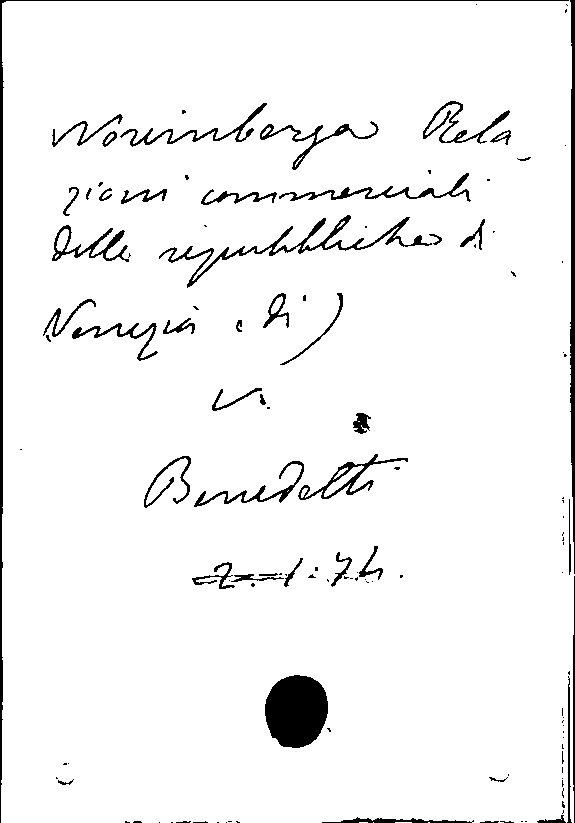 Norimberga Rela-
zioni commerciali
delle repubbliche di
Venezia e di)
V.
Benedetti
2. 1: 74.